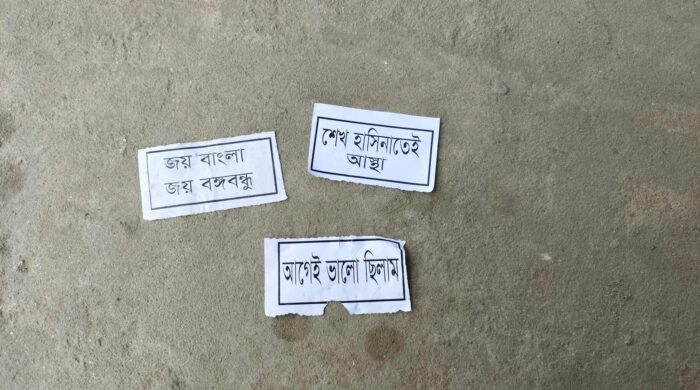 জয় বাংলা
জয় বঙ্গবন্ধু
শেখ হাসিনাতেই
আস্থা
আগেই ভালো ছিলাম